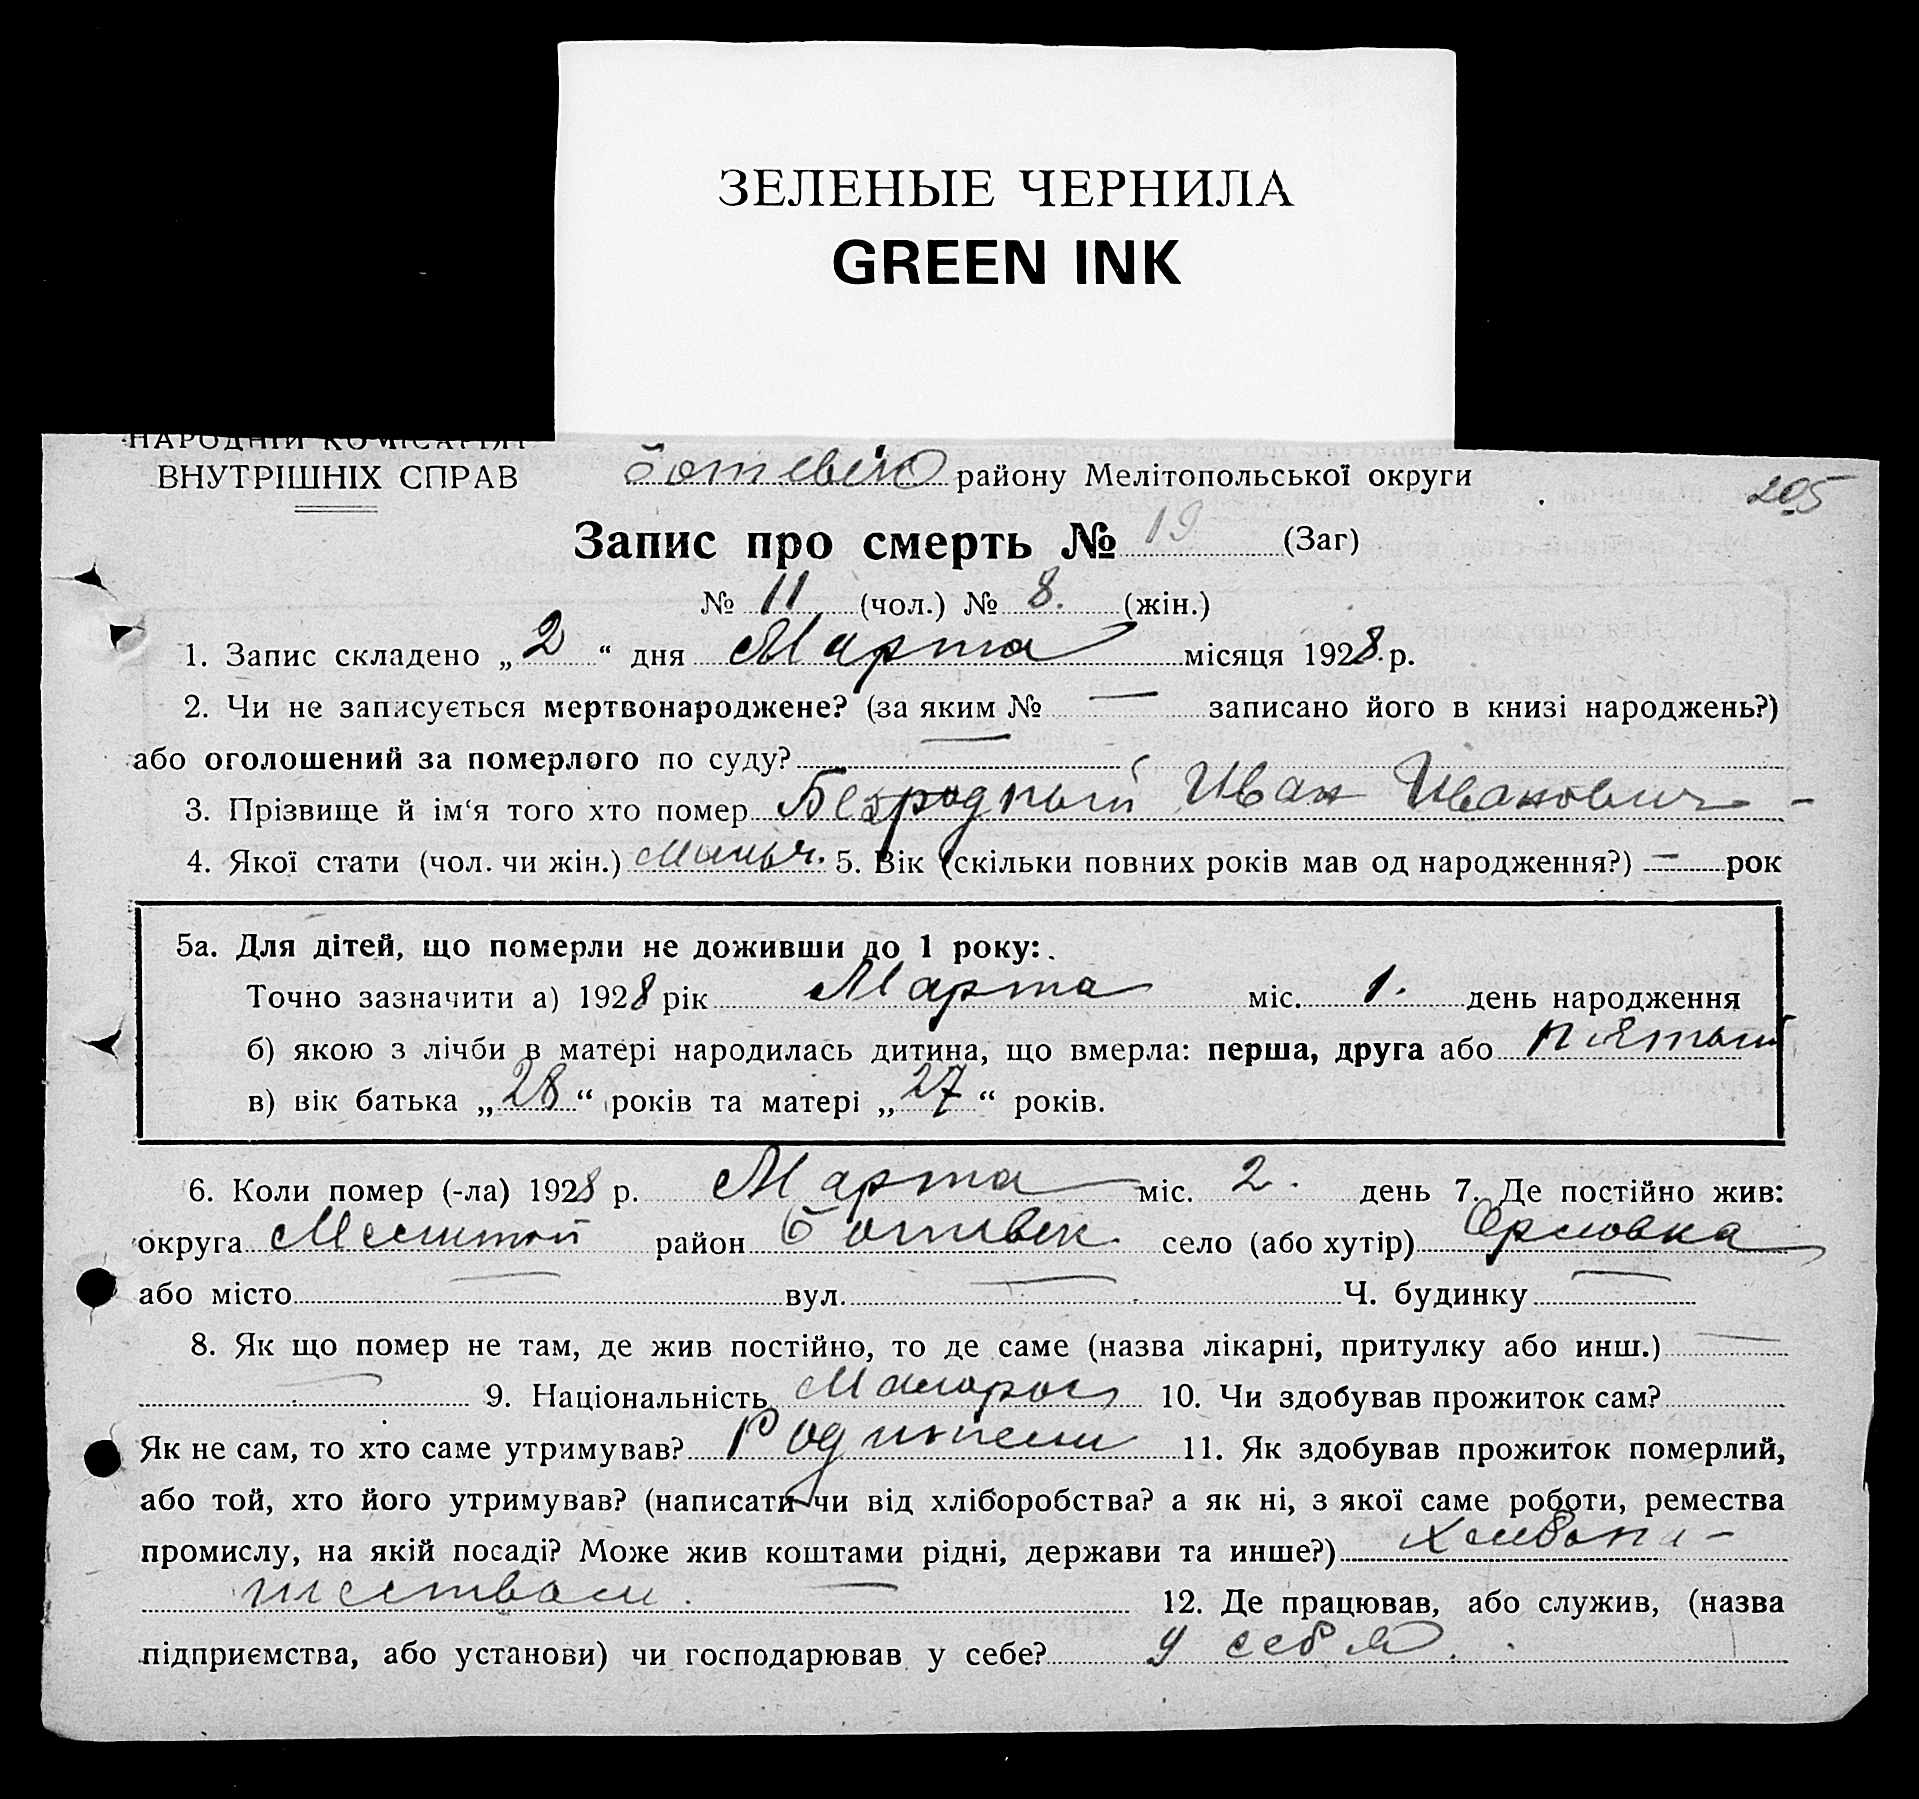 ЗЕЛЕНЫЕ ЧЕРНИЛА
GREEN INK
НАРОДНІЙ КОМІСАРІЯТ
ВНУТРІШНІХ СПРАВ
району Мелітопольської округи 205
Запис про смерть № 19 (Заг)
№ 11 (чол.) № 8. (жін.)
1. Запис складено „2“ дня Марта місяця 1928 р.
2. Чи не записується мертвонароджене? (за яким № — записано його в книзі народжень?)
або оголошений за померлого по суду? —
3. Прізвище й ім‘я того хто помер Безродный Иван Иванович —
4. Якої стати (чол. чи жін.) 5. Вік (скільки повних років мав од народження?) — рок
5а. Для дітей, що померли не доживши до 1 року:
Точно зазначити а) 1928 рік Марта міс. 1. день народження
б) якою з лічби в матері народилась дитина, що вмерла: перша, друга або пятый
в) вік батька „28“ років та матері „27“ років.
6. Коли помер (-ла) 1928 р. Марта міс. 2. день 7. Де постійно жив:
округа Мелитой район Ботивск. село (або хутір) Орловка
або місто — вул. — Ч. будинку —
8. Як що помер не там, де жив постійно, то де саме (назва лікарні, притулку або инш.) —
— 9. Національність Малорос 10. Чи здобував прожиток сам?
Як не сам, то хто саме утримував? Родители 11. Як здобував прожиток померлий,
або той, хто його утримував? (написати чи від хліборобства? а як ні, з якої саме роботи, ремества
промислу, на якій посаді? Може жив коштами рідні, держави та инше?) хлебопа-
шеством. — 12. Де працював, або служив, (назва
підприємства, або установи) чи господарював у себе? у себя.